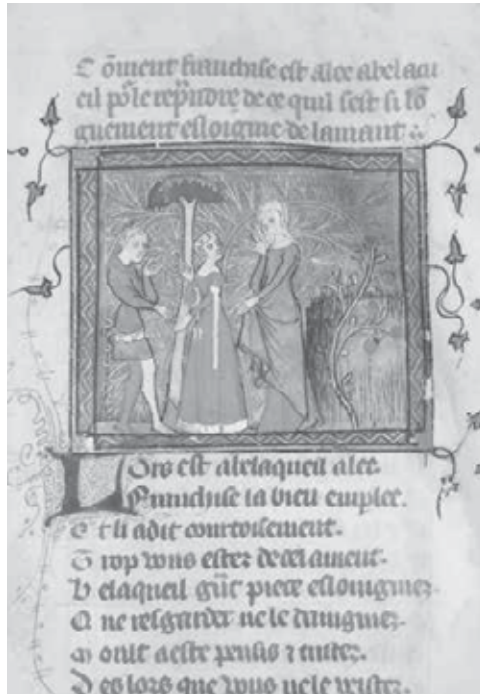 Cōment franchise est alee a belacu
eil pōr le rep̄ndre de ce quil sest si lō
guement esloigne de lamant
Lors est a belaqueil alee
Franchise la bien emplee.
Et li a dit courtoisement.
Trop vous estez de cel ament.
Belaqueil gr̄nt piece esloigniez
Q ne resgarder ne le daigniez.
Moult a este pensis 7
Des lors que vous ne le veistez.